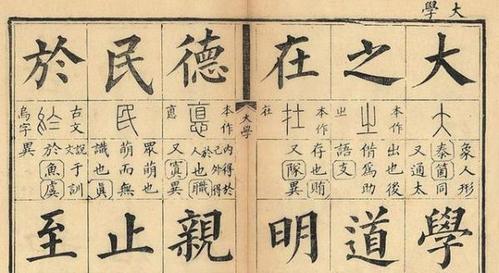 大學
大
大
象人形
泰箇同
又通太
學
之
㞢
本作㞢
出也後
借爲助
語支
道
在
本作在
存也賄
又隊異
明
大學
德
悳
本作悳
內得於
己外得於
人也職
又寘異
親
民
民
眾萌也
萌而無
識也眞
止
於
古文
烏字異
說文于訓
於魚虞
至